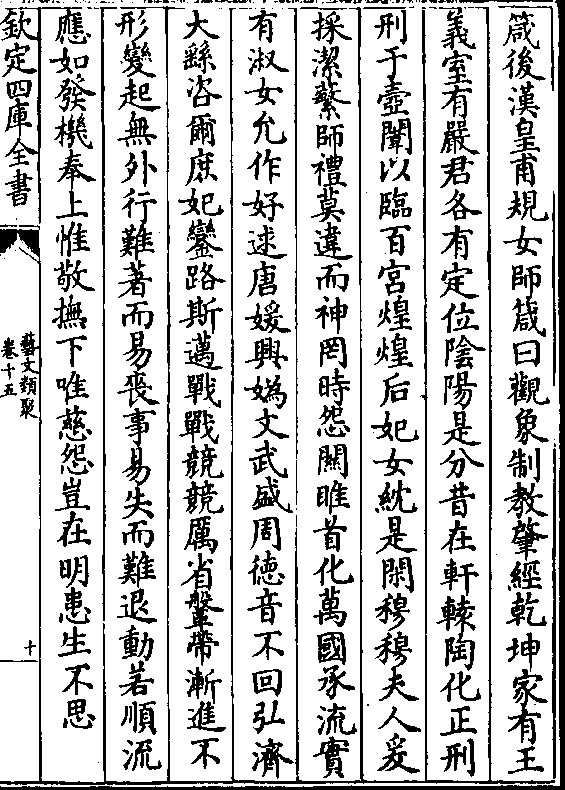 箴後漢皇甫規女師箴曰觀象制教肇經乾坤家有王
義室有嚴君各有定位陰陽是分昔在軒轅陶化正刑
刑于壼闈以臨百宮煌煌后妃女紞是閑穆穆夫人爰
採潔蘩師禮莫違而神罔時怨關雎首化萬國承流實
有淑女允作好逑唐媛興媯文武盛周德音不回弘濟
大繇咨爾庶妃鑾路斯邁戰戰競競厲省鞶帶漸進不
形變起無外行難著而易喪事易失而難退動若順流
應如發機奉上惟敬撫下唯慈怨豈在明患生不思
欽定四庫全書
藝文類聚
卷十五
十